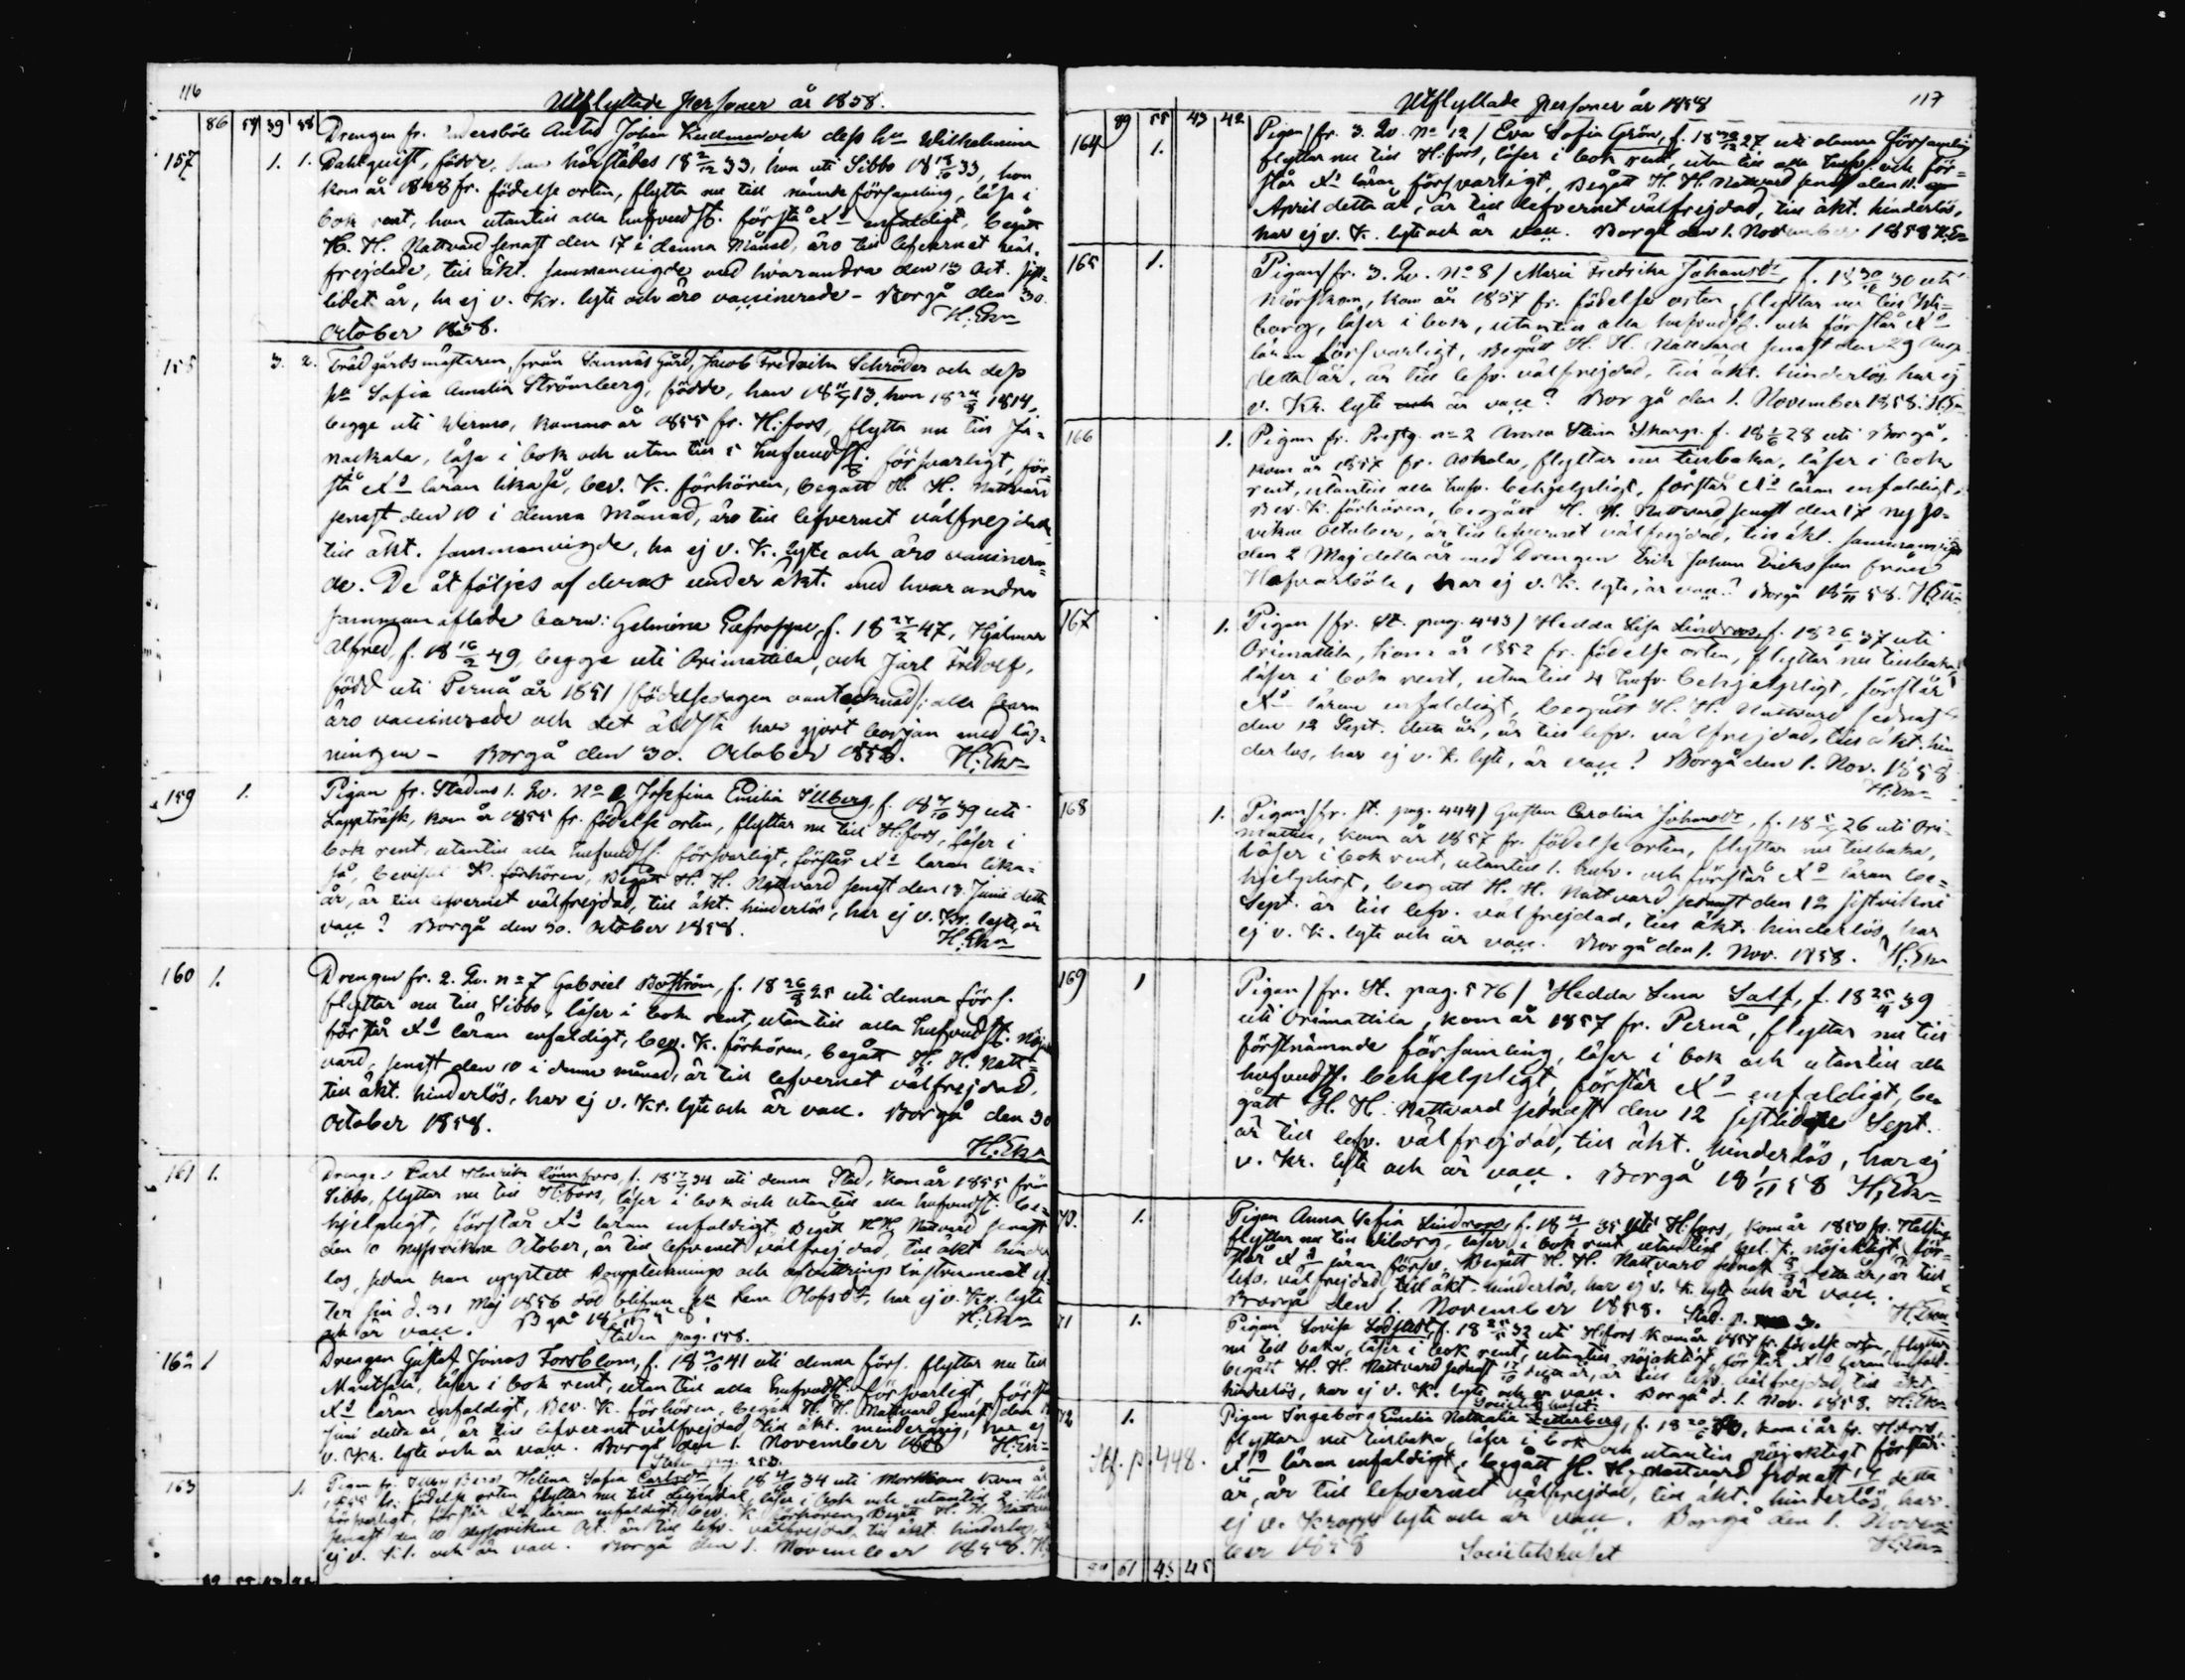 116
Utflyttade Personer år 1858.
86 54 39 38
157 1. 1. Drengen fr. Andersböle Anders Johan Lindman och dess hu Wilhelmina
Dahlquist, födde, han härstädes 18 2/12 33, hon uti Sibbo 18 18/10 33, hon
kom år 1848 fr. födelse orten, flytta nu till nämnde församling, läsa i
bok rent, hon utantill alla hufvudst. förstå Xd enfaldigt, begått
H. H. Nattvard senast den 17 i denna Månad, äro till lefvernet väl-
frejdade, till äkt. sammanvigde med hvarandra den Oct. sist-
lidet år, ha ej v. Kr. lyte och äro vaccinerade - Borgå den 30.
October 1858. H. Ekn
158 3. 2. Trädgårdsmästaren, från Sannäs Gård, Jacob Fredrik Schröder och dess
hu Sofia Amalia Strömberg, födde, han 13, hon 1814,
begge uti Wirmo, kommo år 1855 fr. H:fors, flytta nu till Ja-
nackala, läsa i bok och utan till 5 hufvudst. försvarligt, för-
stå Xd läran likaså, bev. K. förhören, begått H. H. Nattvard
senast den 10 i denna Månad, äro till lefvernet välfrejdade
till äkt. sammanvigde, ha ej v. K. lyte och äro vaccinera-
de. De åtföljes af deras under äkt. med hvarandra
sammanaflade barn: Gelmina Eufrosyne, f. 18 27/2 47, Hjalmar
Alfred, f. 18 16/2 49, begge uti Orimattila, och Jarl Fridolf,
född uti Pernå år 1851 /födelsedagen oantecknad/: alla barn
äro vaccinerade och det äldsta har gjort början med läs-
ningen - Borgå den 30. October 1858. H. Ekn
159 1. Pigan fr. Stadens 1. Qv. No 2 Josefina Emilia Illberg, f. 39 uti
Lappträsk, kom år 1855 fr. födelse orten, flyttar nu till H:fors, läser i
bok rent, utantill alla hufvudst. försvarligt, förstår Xd läran lika-
så, bevisat K. förhören, Begått H. H. Nattvard senast den 13. Juni detta
år, är till lefvernet välfrejdad, till äkt. hinderlös, har ej v. Kr. lyte, är
vacc? Borgå den 30. October 1858. H. Ekn
160 1. Drengen fr. 2. Qv. no 7 Gabriel Boström, f. 18 26/9 25 uti denna förs.
flyttar nu till Sibbo, läser i bok rent, utan till alla hufvudst.
förstår Xd läran enfaldigt, bev. K. förhören, begått H. H. Natt-
vard, senast den 10 i denna månad, är till lefvernet välfrejdad,
till äkt. hinderlös, har ej v. Kr. lyte och är vacc. Borgå den 30
October 1858. H. Ekn
161 1. Drengen Carl Henrik Lönnfors, f. 34 uti denna Stad, kom år 1855 från
Sibbo, flyttar nu till H:fors, läser i bok och utantill alla hufvudst. be-
hjelpligt, förstår Xd läran enfaldigt Begått H. H. Nattvard senast
den 10 nyssvikne October, är till lefvernet välfrejdad, till äkt hinder
lös, sedan han upprettat Bouppteknings och afvittrings instrument ef-
ter sin d. 31 Maj 1856 död blifna hu Lena Olofsdr, har ej v. Kr. lyte
och är vacc. H. Ekn
Staden pag. 158.
162 1 Drengen Gustaf Jonas Forsblom, f. 41 uti denna förs. flyttar nu till
Mäntsälä, läser i bok rent, utan till alla hufvudst. försvarligt, förstår
Xd läran enfaldigt, Bev. K. förhören, begått H. H. Nattvard senast den
Juni detta år, är till lefvernet välfrejdad, till äkt. minderårig, har ej
v. Kr. lyte och är vacc. Borgå den 1. November 1858 H. Ekn
163 1. Pigan fr. Helena Sofia Carlsdr f. 34 uti Mörskom kom år
fr. födelse orten flyttar nu till Liljendal, läser i bok och utantill 2
försvarligt, förstår Xd läran enfaldigt, bev. K. förhören, Begått H. H. Nattvard
senast den 10 nyssvikne Oct. är till lefv. välfrejdad, till äkt hinderlös,
ej v. K. l. och är vacc. Borgå den 1. November 1858. H.
117
Utflyttade Personer år 1858
89 55 43 42
164 1. Pigan /fr. 3. Qv. No 12/ Eva Sofia Grön, f. 27 uti denna församling
flyttar nu till H:fors, läser i bok rent, utan till alla hufv. och för-
står Xd läran försvarligt, Begått H. H. Nattvard senast den 11.
April detta år, är till lefvernet välfrejdad, till äkt. hinderlös,
har ej v. K. lyte och är vacc. Borgå den 1. November 1858 H. Ekn
165 1. Pigan /fr. 3. Qv. No 8/ Maria Fredrika Johansdr, f. 30 uti
Mörskom, kom år 1857 fr. födelse orten, flyttar nu till Wi-
borg, läser i bok, utantill alla hufvudst. och förstår Xd
läran försvarligt, Begått H. H. Nattvard senast den 29 Aug
detta år, är till lefv. välfrejdad, till äkt. hinderlös, har ej
v. Kr. lyte och är vacc? Borgå den 1. November 1858. H. Ekn
166 1. Pigan fr. Prestg. no 2 Anna Stina Skarp. f. 18 1/6 28 uti Borgå,
kom år 1857 fr. Askola, flyttar nu tillbaka, läser i bok
rent, utantill alla hufv. behjelpligt, förstår Xd läran enfaldigt,
Bev. K. förhören, begått H. H. Nattvard senast den 17 nyss-
vikne October, är till lefvernet välfrejdad, till äkt. sammanvigd
den 2 Maj detta år med Drengen Erik Johan Eriksson från
Hafvarböle, har ej v. K. lyte, är vacc? Borgå 18 1/11 58. H. Ekn
167 1. Pigan /fr. St. pag. 443/ Hedda Lisa Lindroos, f. 37 uti
Orimattila, kom år 1852 fr. födelse orten, flyttar nu tillbaka,
läser i bok rent, utantill 4 hufv. behjelpligt, förstår
Xd läran enfaldigt, begått H. H. Nattvard sednast
den 12 Sept. detta år, är till lefv. välfrejdad, till äkt. hin
derlös, har ej v. K. lyte, är vacc? Borgå den 1. Nov. 1858
H. Ekn
168 1. Pigan /fr. St. pag. 444/ Gustava Carolina Johansdr, f. 26 uti Ori-
mattila, kom år 1857 fr. födelse orten, flyttar nu tillbaka,
läser i bok rent, utantill 1. hufv. och förstår Xd läran be-
hjelpligt, begått H. H. Nattvard sednast den 12 sistvikne
Sept. är till lefv. välfrejdad, till äkt. hinderlös, har
ej v. K. lyte och är vacc. Borgå den 1. Nov. 1858. H. Ekn
169 1 Pigan /fr. St. pag. 576/ Hedda Lena Salf, f. 18 25/4 39
uti Orimattila, kom år 1857 fr. Pernå, flyttar nu till
förstnämnde församling, läser i bok och utantill alla
hufvudst. behjelpligt, förstår Xd enfaldigt, be
gått H. H. Nattvard sednast den 12 sistlidne Sept.
är till lefv. välfrejdad, till äkt. hinderlös, har ej
v. Kr. lyte och är vacc. Borgå 18 1/11 58 H. Ekn
70. 1. Pigan Anna Sofia Lindroos, f. 35 uti H:fors, kom år 1850 fr. Helsinge
flyttar nu till Wiborg, läser i bok rent utantill nöjaktigt, för-
står Xd läran försv. Begått H. H. Nattvard sednast detta år, är till
lefv. välfrejdad, till äkt. hinderlös, har ej v. K. lyte och är vacc.
Borgå den 1. November 1858. H. Ekn
71 1. Pigan Lovisa f. 32 uti H:fors kom år 1857 fr. födelse orten, flyttar
nu till baka, läser i bok rent, utantill nöjaktigt, förstår Xd läran enfald.
begått H. H. Nattvard sednast detta år, är till lefv. välfrejdad, till äkt.
hinderlös, har ej v. K. lyte och är vacc. Borgå d. 1. Nov. 1858. H. Ekn
Societetshuset
72 1. Pigan Ingeborg Emilia Nathalia Zetterberg, f. 18 40, kom i år fr. H:fors,
flyttar nu tillbaka, läser i bok och utantill nöjaktigt förstår
Stf. p. 448. Xd läran enfaldigt, begått H. H. Nattvard sednast detta
år, är till lefvernet välfrejdad, till äkt. hinderlös, har
ej v. Kropps lyte och är vacc. Borgå den 1. Novem-
ber 1858 Societetshuset H. Ekn
61 43 45